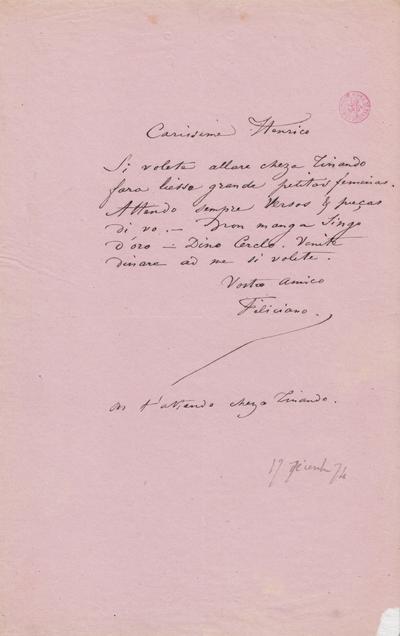 Carissime Henrico
Si volete allare cheza Tinando
fara liesse grande petitas femenas.
Attendo sempre versos & peças
di vo. — Dron manga Singe
d'oro — Dino Cercle. Venite
dinare ad me si volete.
Vostro amico
Feliciano.
on t'attendo cheza Tinando.
19 74